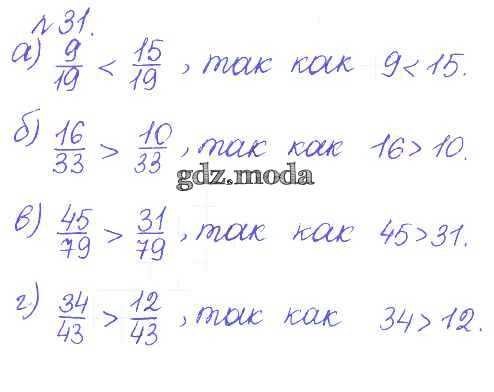 №31.
а) 9/19 < 15/19, так как 9<15.
б) 16/33 > 10/33, так как 16>10.
gdz.moda
в) 45/79 > 31/79, так как 45>31.
г) 34/43 > 12/43, так как 34>12.